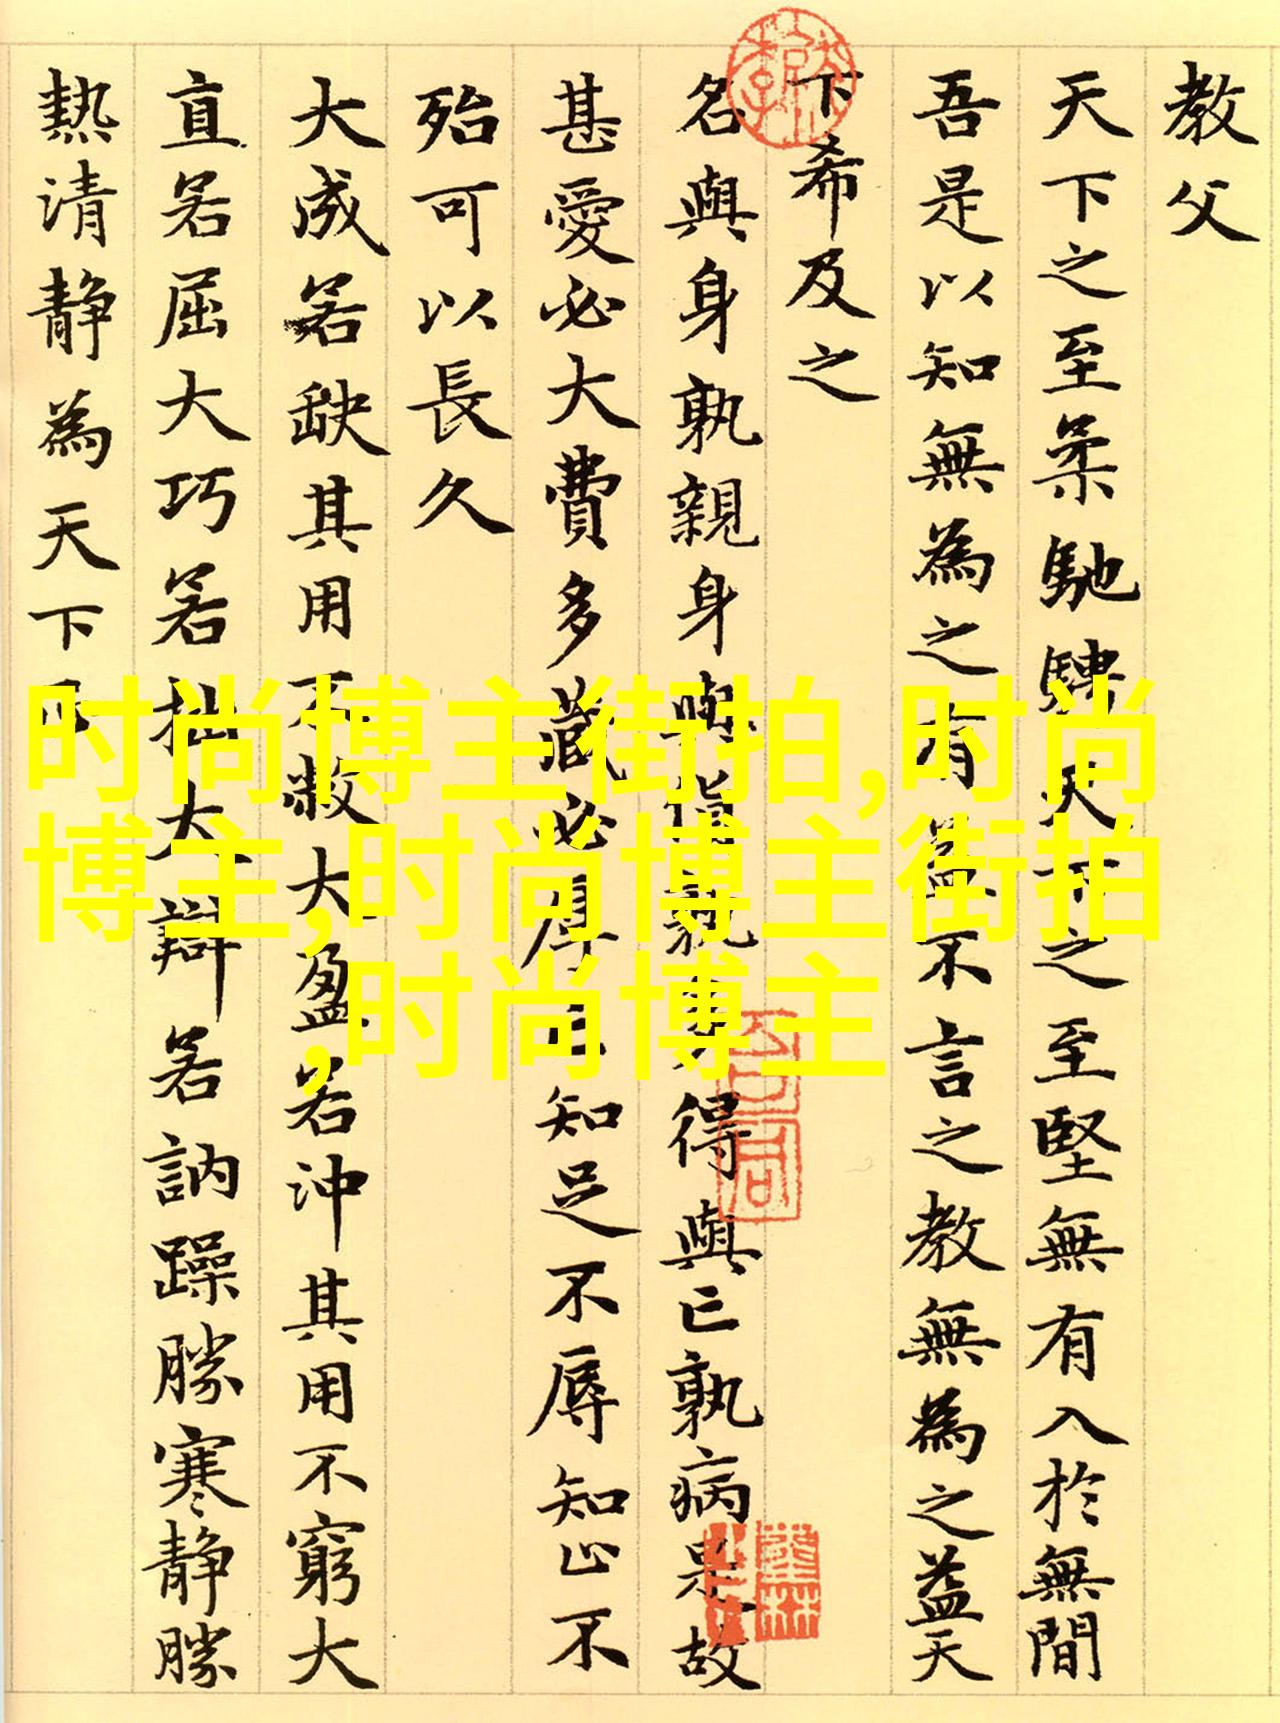 教父
天下之至柔馳騁天下之至堅無有入於無間
吾是以知無為之有益不言之教無為之益天
下希及之
名與身孰親身與貨孰多得與亡孰病是故
甚愛必大費多藏必厚亡知足不辱知止不
殆可以長久
大成若缺其用不敝大盈若沖其用不窮大
直若屈大巧若拙大辯若訥躁勝寒靜勝
熱清靜為天下正
时尚博主街拍,时尚
博主,时尚博主街拍
,时尚博主